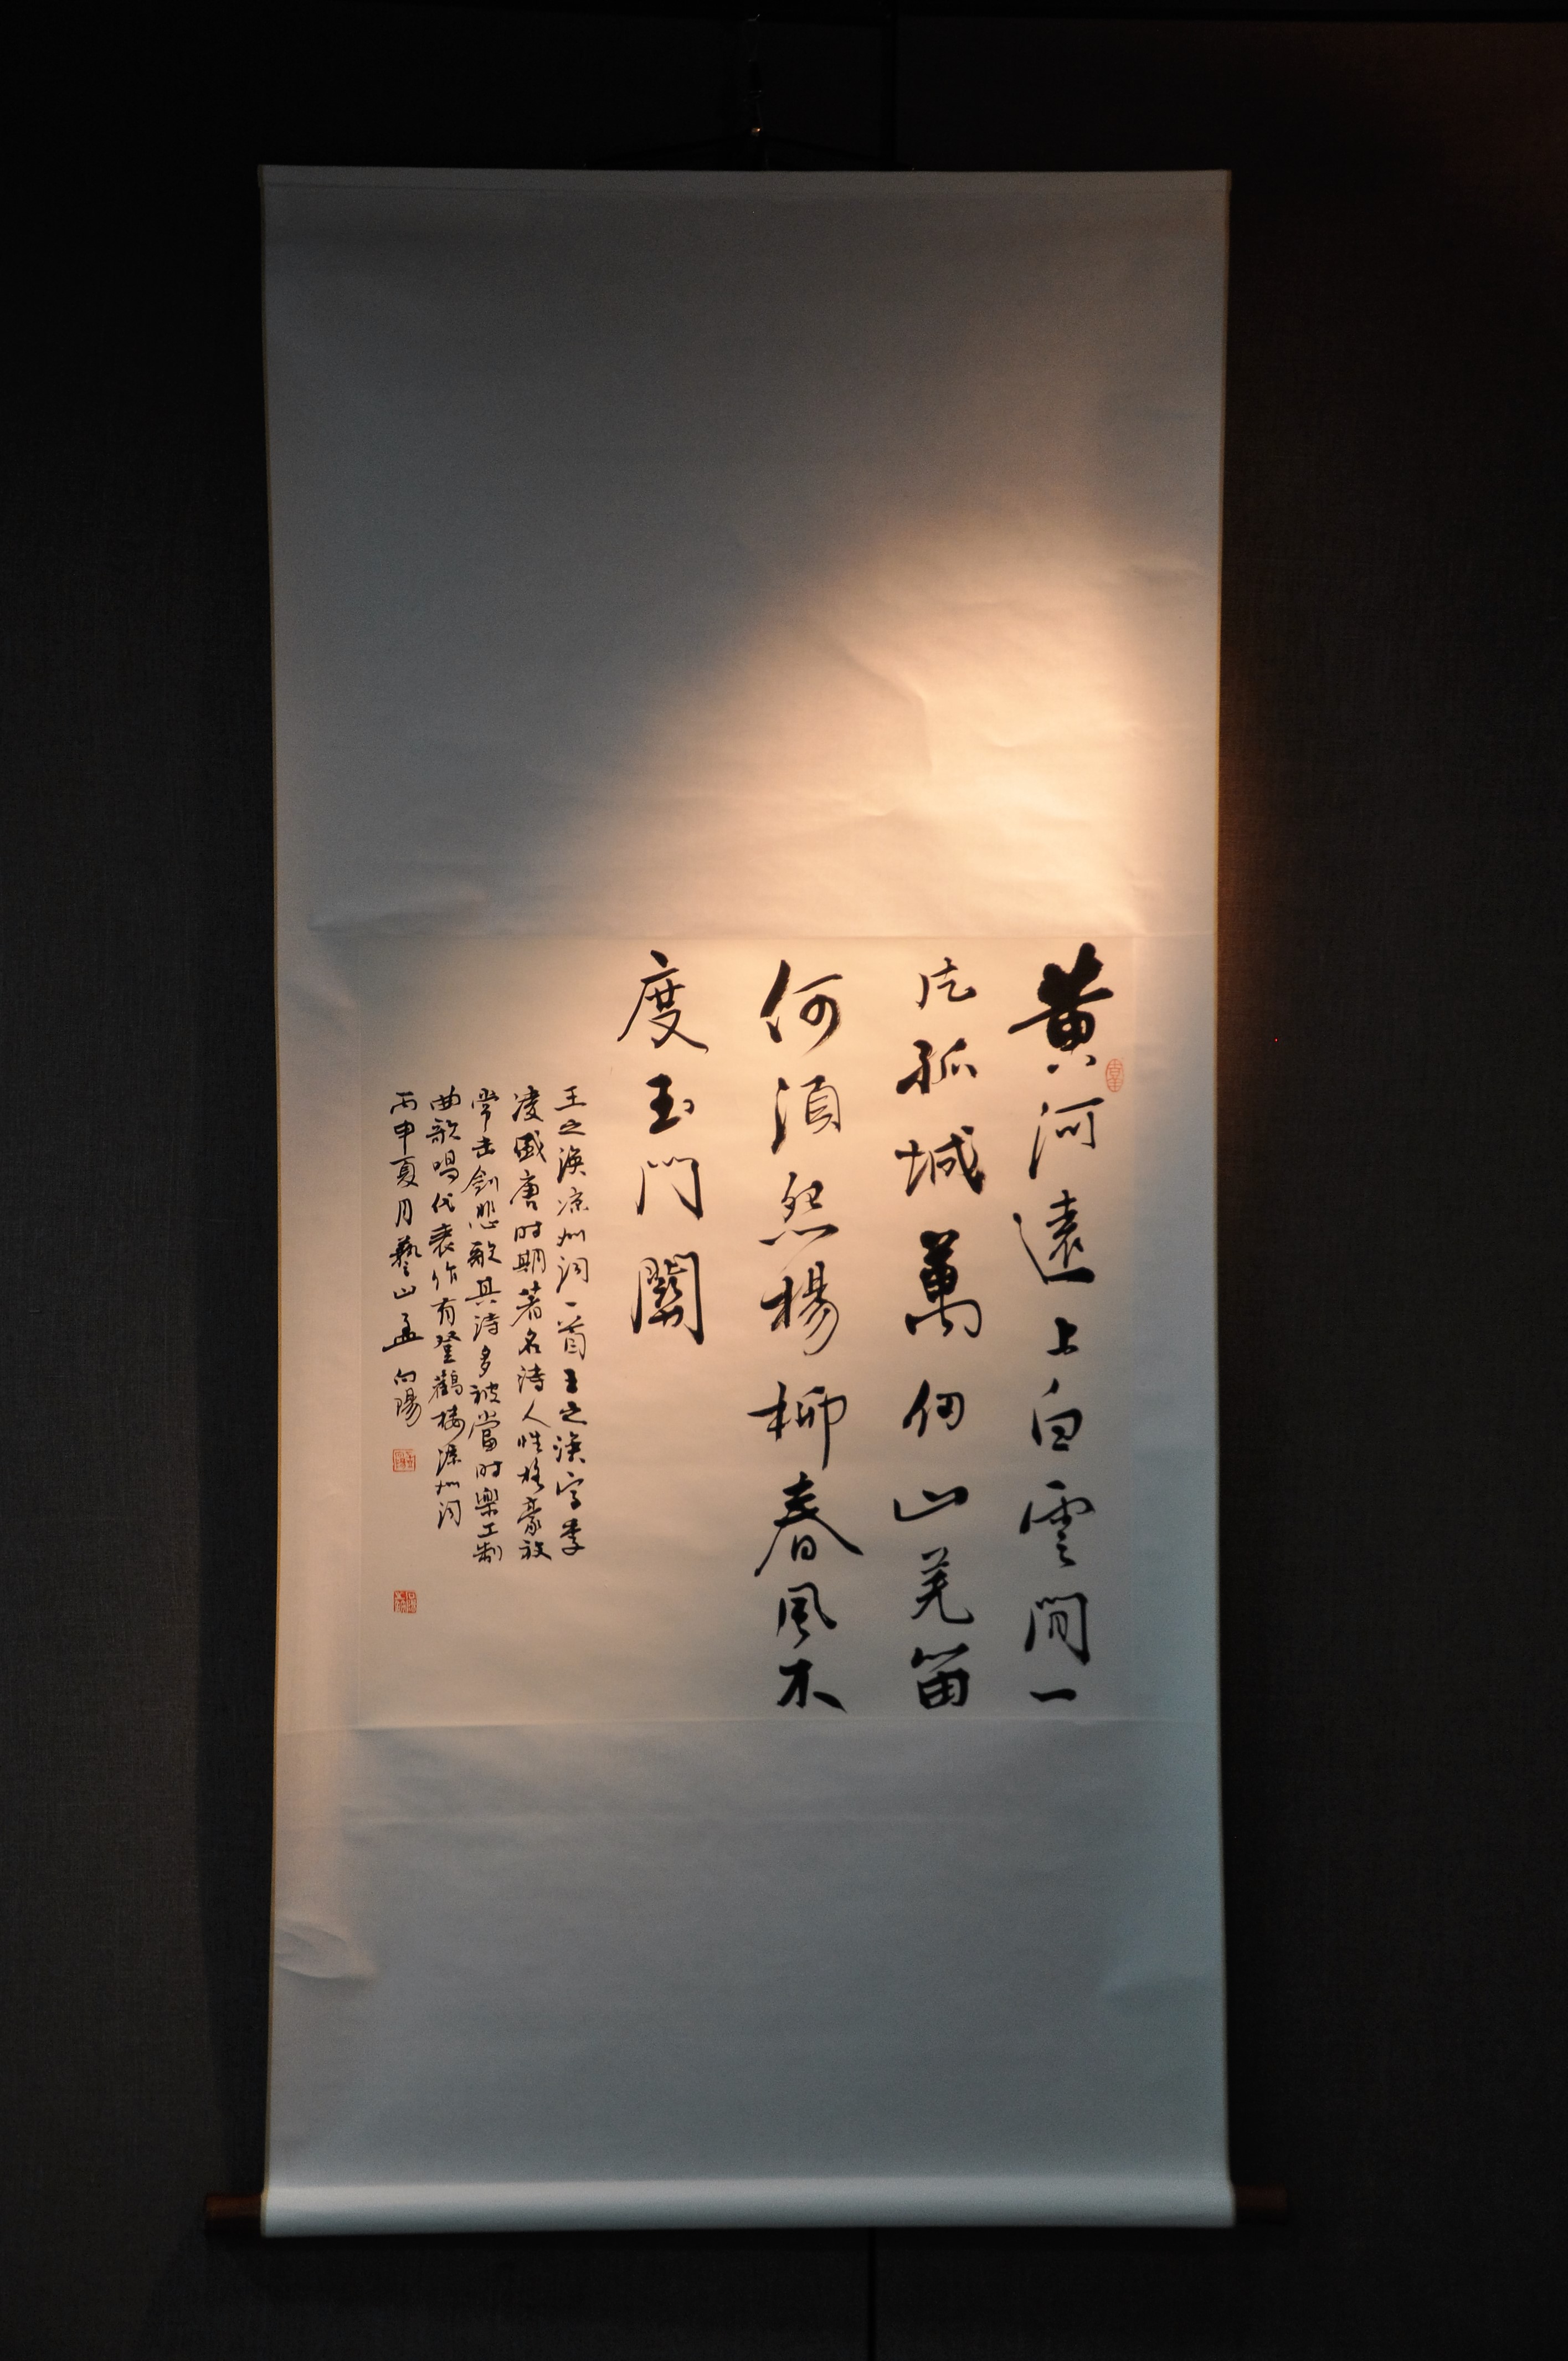 黄河遠上白雲間一
片孤城萬仞山羌笛
何須怨楊柳春風不
度玉門關
王之渙凉州词一首王之渙字季
凌盛唐时期著名诗人性格豪放
常击劍悲歌其诗多被當时樂工制
曲歌唱代表作有登鸛楼凉州词
丙申夏月藝山孟向陽